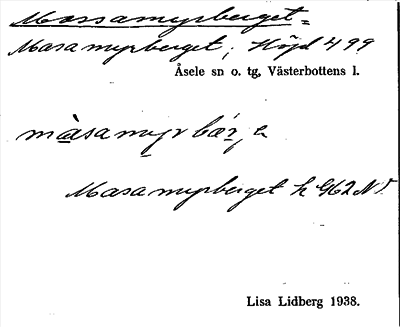 Massamyrberget =
Masamyrberget, Höjd 499
Åsele sn o. tg, Västerbottens l.
màsamyrbær,
Masamyrberget k 462 Nv.
Lisa Lidberg 1938.